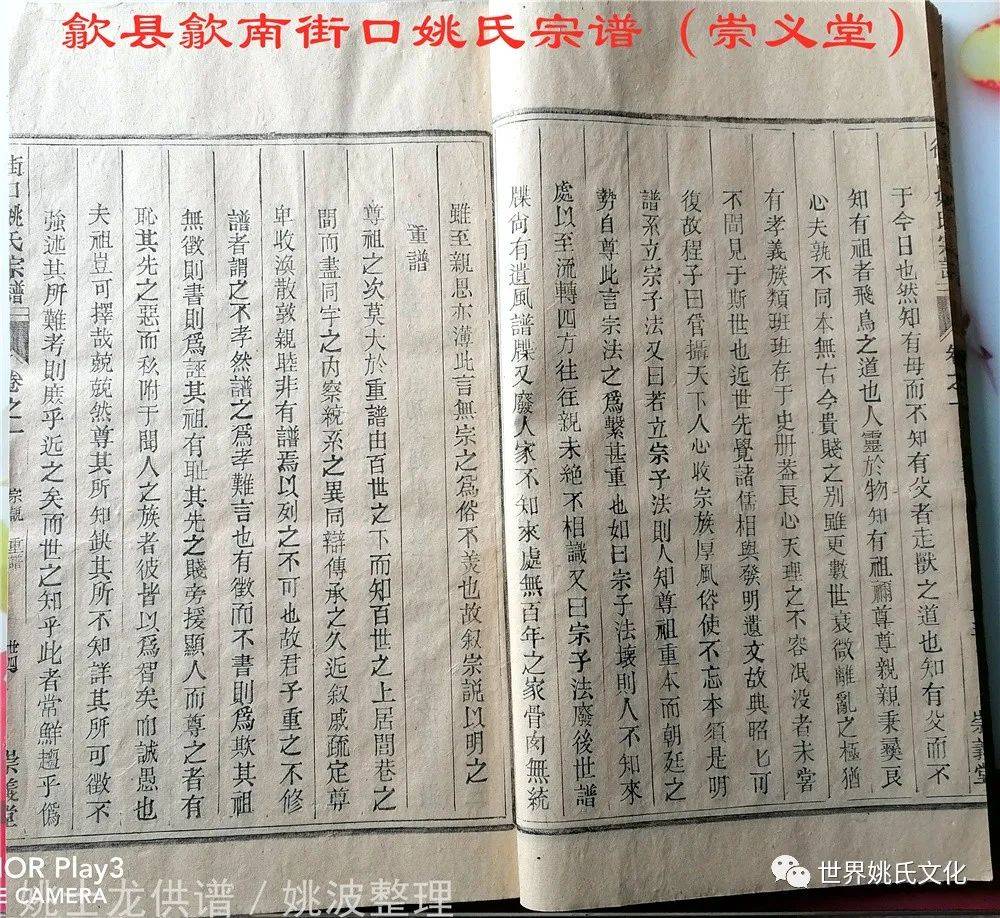 歙县歙南街口姚氏宗谱（崇义堂）
于今日也然知有母而不知有父者走獸之道也知有父而不
知有祖者飛鳥之道也人靈於物知有祖禰尊尊親親秉彞良
心夫孰不同本無古今貴賤之別雖更數世衰微離亂之極猶
有孝義族類班班存于史册葢良心天理之不容泯没者未甞
不間見于斯世也近世先覺諸儒相與發明遺文故典昭匕可
復故程子曰管攝天下人心收宗族厚風俗使不忘本須是明
譜系立宗子法又曰若立宗子法則人知尊祖重本而朝廷之
勢自尊此言宗法之爲繫甚重也如曰宗子法壞則人不知來
處以至流轉四方往往親未絶不相識又曰宗子法廢後世譜
牒尙有遺風譜牒又廢人家不知來處無百年之家骨肉無統
雖至親恩亦薄此言無宗之爲俗不美也故叙宗説以明之
重譜
尊祖之次莫大於重譜由百世之下而知百世之上居閭巷之
間而盡同宇之内察統系之異同辯傳承之久近叙戚疏定尊
卑收渙散敦親睦非有譜焉以列之不可也故君子重之不修
譜者謂之不孝然譜之爲孝難言也有徵而不書則爲欺其祖
無徵則書則爲誣其祖有耻其先之賤旁援顯人而尊之者有
恥其先之惡而私附于聞人之族者彼皆以爲智矣而誠愚也
夫祖豈可擇哉兢兢然尊其所知缺其所不知詳其所可徵不
強述其所難考則庶乎近之矣而世之知乎此者常鮮趨乎僞
街口姚氏宗譜
卷之一
宗說 重譜
崇義堂
崇義堂
NOR Play3
CAMERA
龙供谱 / 姚波整理
世界姚氏文化